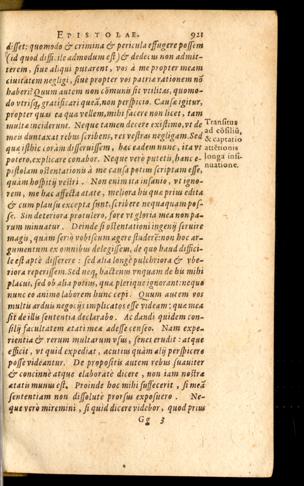 EPISTOLAE. 921
disset: quomodo & crimina & pericula effugere possem
(id quod difficile admodum est) & dedecus non admit-
terem, siue aliqui putarent, vos à me propter meam
ciuitatem negligi, siue propter vos patriæ rationem nõ
haberi? Quum autem non cõmuni sit vtilitas, quomo-
do vtrisq, gratificari queã, non perspicio. Causæ igitur,
propter quas ea quæ vellem, mihi facere non licet, tam
multæ inciderunt. Neque tamen decere existimo, vt de
meo duntaxat rebus scribens, res vestras negligam. Sed
quæ isthic coràm disseruissem, hæc eadem nunc, ita vt
potero, explicare conabor. Neque verò putetis, hanc e-
pistolam ostentationis à me causa potius scriptam esse,
quàm hospitij vestri. Non enim ita insanio, vt igno-
rem, me hac affecta ætate, meliora his quæ prius edita
& cum plausu excepta sunt, scribere nequaquam pos-
se. Sin deteriora protulero, fore vt gloria mea non pa-
rum minuatur. Deinde si ostentationi ingenij seruire
magis, quàm seriò vobiscum agere studerẽ: non hoc ar-
gumentum ex omnibus delegissem, de quo haud diffici-
le est aptè disserere: sed alia longè pulchriora & vbe-
riora reperissem. Sed neq, hactenus vnquam de his mihi
placui, sed ob alia potius, quæ plerique ignorant: neque
nunc eo animo laborem hunc cepi. Quum autem vos
multis arduis negotijs implicatos esse videam: quæ mea
sit de illis sententia declarabo. Ac dandi quidem con-
silij facultatem ætati meæ adesse censeo. Nam expe-
rientia & rerum multarum vsus, senes erudit: atque
efficit, vt quid expediat, acutius quàm alij perspicere
posse videantur. De propositis autem rebus suauiter
& concinnè atque elaboratè dicere, non iam nostræ
ætatis munus est. Proinde hoc mihi suffecerit, si meã
sententiam non dissolutè prorsus exposuero. Ne-
que verò miremini, si quid dicere videbor, quod prius
Gg 3
Transitus
ad cõsiliũ,
& captatio
attẽtionis
longa insi-
nuatione.